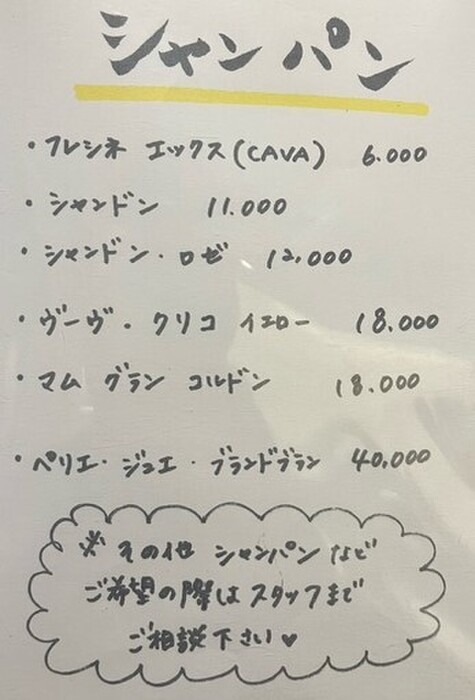 シャンパン
・フレシネ エックス(CAVA) 6.000
・シャンドン 11.000
・シャンドン・ロゼ 12,000
・ヴーヴ・クリコ イエロー 18.000
・マム グラン コルドン 18.000
・ペリエ・ジュエ・ブランドブラン 40,000
※その他 シャンパンなど
ご希望の際はスタッフまで
ご相談下さい♥